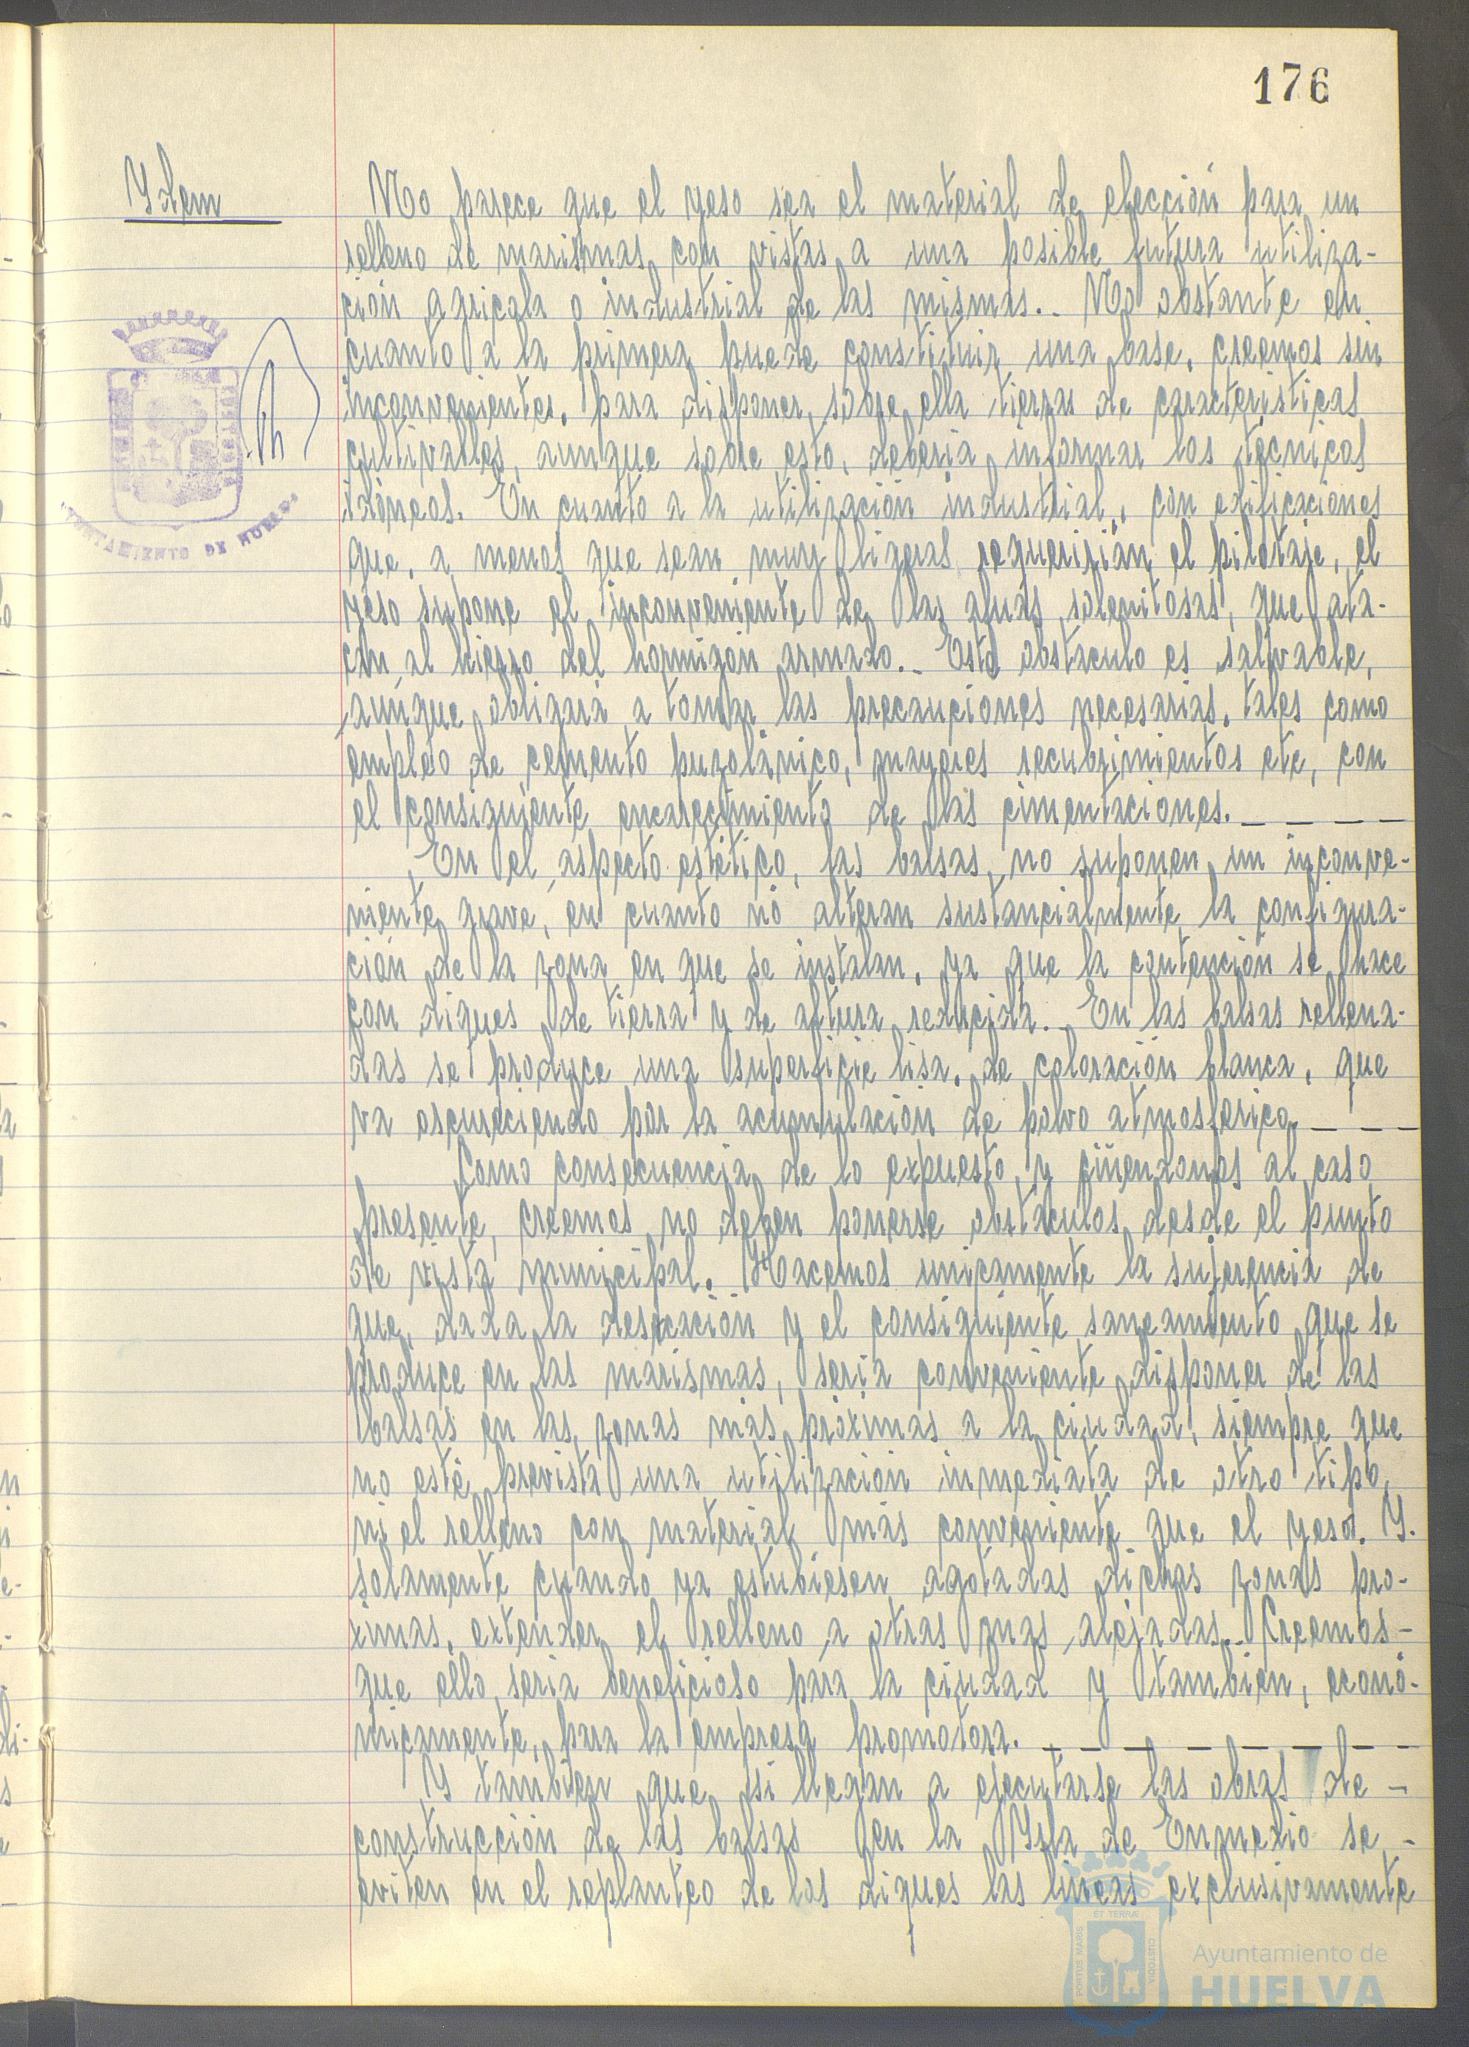 176
Ydem
No parece que el yeso sea el material de elección para un
relleno de marismas con vistas a una posible futura utiliza-
ción agricola o industrial de las mismas.- No obstante en
cuanto a la primera puede constituir una base, creemos sin
inconvenientes, para disponer sobre ella tierras de caracteristicas
cultivables, aunque sobre esto, deberia informar los técnicos
idóneos. En cuanto a la utilización industrial, con edificaciones
que, a menos que sean muy ligeras requerirán el pilotaje, el
yeso supone el inconveniente de las aguas selenitosas, que ata-
can al hierro del hormigón armado.- Este obstaculo es salvable,
aunque obligará a tomar las precauciones necesarias, tales como
empleo de cemento puzolánico, mayores recubrimientos etc, con
el consiguiente encarecimiento de las cimentaciones. - - - -
En el aspecto estético, las balsas no suponen un inconve-
niente grave, en cuanto no alteran sustancialmente la configura-
ción de la zona en que se instalan, ya que la contención se hace
con diques de tierra y de altura reducida.- En las balsas rellena-
das se produce una superficie lisa, de coloración blanca, que
va oscureciendo por la acumulación de polvo atmosferico. - - -
Como consecuencia de lo expuesto y ciñendonos al caso
presente, creemos no deben ponerse obstáculos desde el punto
de vista municipal. Hacemos unicamente la sujerencia de
que, dada la desecación y el consiguiente saneamiento que se
produce en las marismas, seria conveniente disponer de las
balsas en las zonas más próximas a la ciudad, siempre que
no esté prevista una utilización inmediata de otro tipo,
ni el relleno con material más conveniente que el yeso. Y.
solamente cuando ya estubiesen agotadas dichas zonas pro-
ximas, extender el relleno a otras mas alejadas.- Creemos -
que ello seria beneficioso para la ciudad y tambien, econó-
micamente, para la empresa promotora. - - - - - - - - -
Y tambien que si llegan a ejecutarse las obras de -
construcción de las balsas en la Ysla de Enmedio se -
eviten en el replanteo de los diques las lineas exclusivamente
AYUNTAMIENTO DE HUELVA
PORTUS MARIS ET TERRAE CUSTODIA
Ayuntamiento de
HUELVA